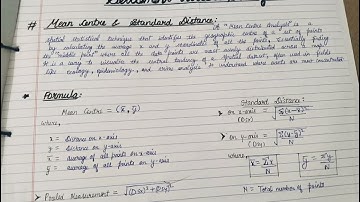 # Mean Centre & Standard Distance:
"Mean Centre Analysis" is a
spatial statistical technique that identifies the geographic centre of a set of points
by calculating the average x and y coordinates of all the points, essentially finding
the "middle point" where all the data points are most evenly distributed across a map.
It is a way to visualize the central tendency of a spatial dataset, often used in fields
like ecology, epidemiology, and crime analysis to understand where events are most concentrated
* Formula:
Mean Centre = (x̄, ȳ)
where,
x = Distance on x-axis
y = Distance on y-axis
x̄ = average of all points on x-axis
ȳ = average of all points on y-axis
➤ Pooled Measurement = √(DSx)²+(DSy)²
Standard Distance:
➤ on x-axis = √Σ(x-x̄)²/N
(DSx)
➤ on y-axis = √Σ(y-ȳ)²/N
(DSy)
where,
x̄ = Σx/N
ȳ = Σy/N
N = Total number of points